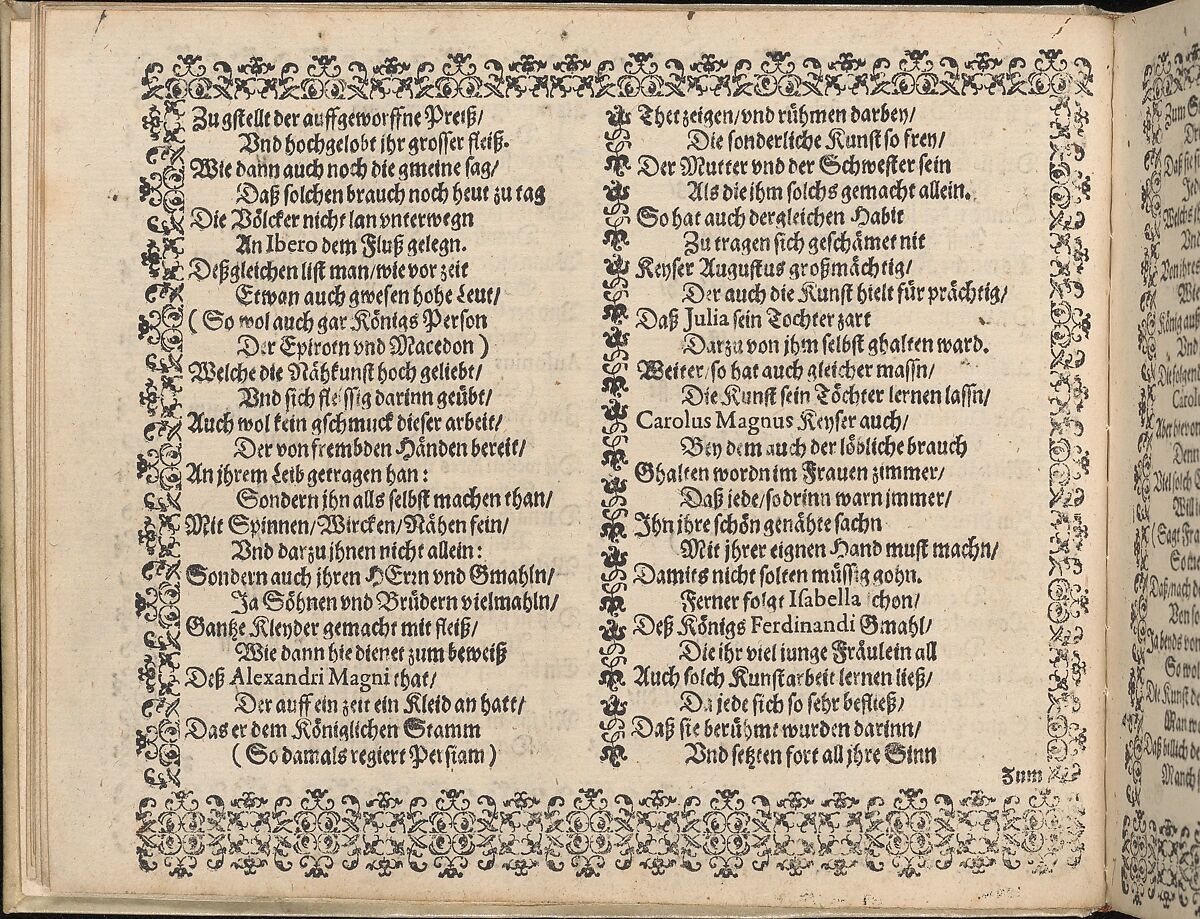 Zu gstellt der auffgeworffne Preiß/
Vnd hochgelobt jhr grosser fleiß.
Wie dann auch noch die gmeine sag/
Daß solchen brauch noch heut zu tag
Die Völcker nicht lan vnterwegn
An Ibero dem Fluß gelegn.
Deßgleichen list man/wie vor zeit
Etwan auch gwesen hohe Leut/
(So wol auch gar Königs Person
Der Epirotn vnd Macedon)
Welche die Nähkunst hoch geliebt/
Vnd sich fleissig darinn geübt/
Auch wol kein gschmuck dieser arbeit/
Der von frembden Händen bereit/
An jhrem Leib getragen han:
Sondern jhn alls selbst machen than/
Mit Spinnen/Wircken/Nähen fein/
Vnd darzu jhnen nicht allein:
Sondern auch jhren HErrn vnd Gmahln/
Ja Söhnen vnd Brüdern vielmahln/
Gantze Kleyder gemacht mit fleiß/
Wie dann hie dienet zum beweiß
Deß Alexandri Magni that/
Der auff ein zeit ein Kleid an hatt/
Das er dem Königlichen Stamm
(So damals regiert Persiam)
Thet zeigen/vnd rühmen darbey/
Die sonderliche Kunst so frey/
Der Mutter vnd der Schwester sein
Als die jhm solchs gemacht allein.
So hat auch dergleichen Habit
Zu tragen sich geschämet nit
Keyser Augustus großmächtig/
Der auch die Kunst hielt für prächtig/
Daß Julia sein Tochter zart
Darzu von jhm selbst ghalten ward.
Weiter/so hat auch gleicher massn/
Die Kunst sein Töchter lernen lassn/
Carolus Magnus Keyser auch/
Bey dem auch der löbliche brauch
Ghalten wordn im Frauen zimmer/
Daß jede/so drinn warn jmmer/
Jhn jhre schön genähte sachn
Mit jhrer eignen Hand must machn/
Damits nicht solten müssig gohn.
Ferner folgt Isabella schon/
Deß Königs Ferdinandi Gmahl/
Die jhr viel junge Fräulein all
Auch solch Kunstarbeit lernen ließ/
Da jede sich so sehr befließ/
Daß sie berühmt wurden darinn/
Vnd setzten fort all jhre Sinn
Zum